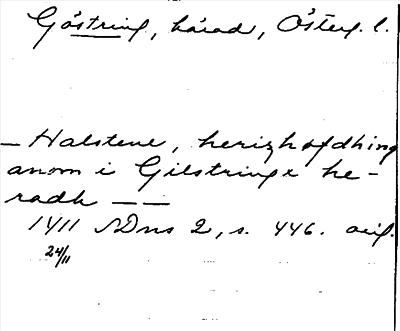 Göstring, härad, Österg. l.
— Halstene, herizhøfdhing
anom i Gilstringe he-
radh — —
1411 SDns 2, s. 446. orig.
24/11